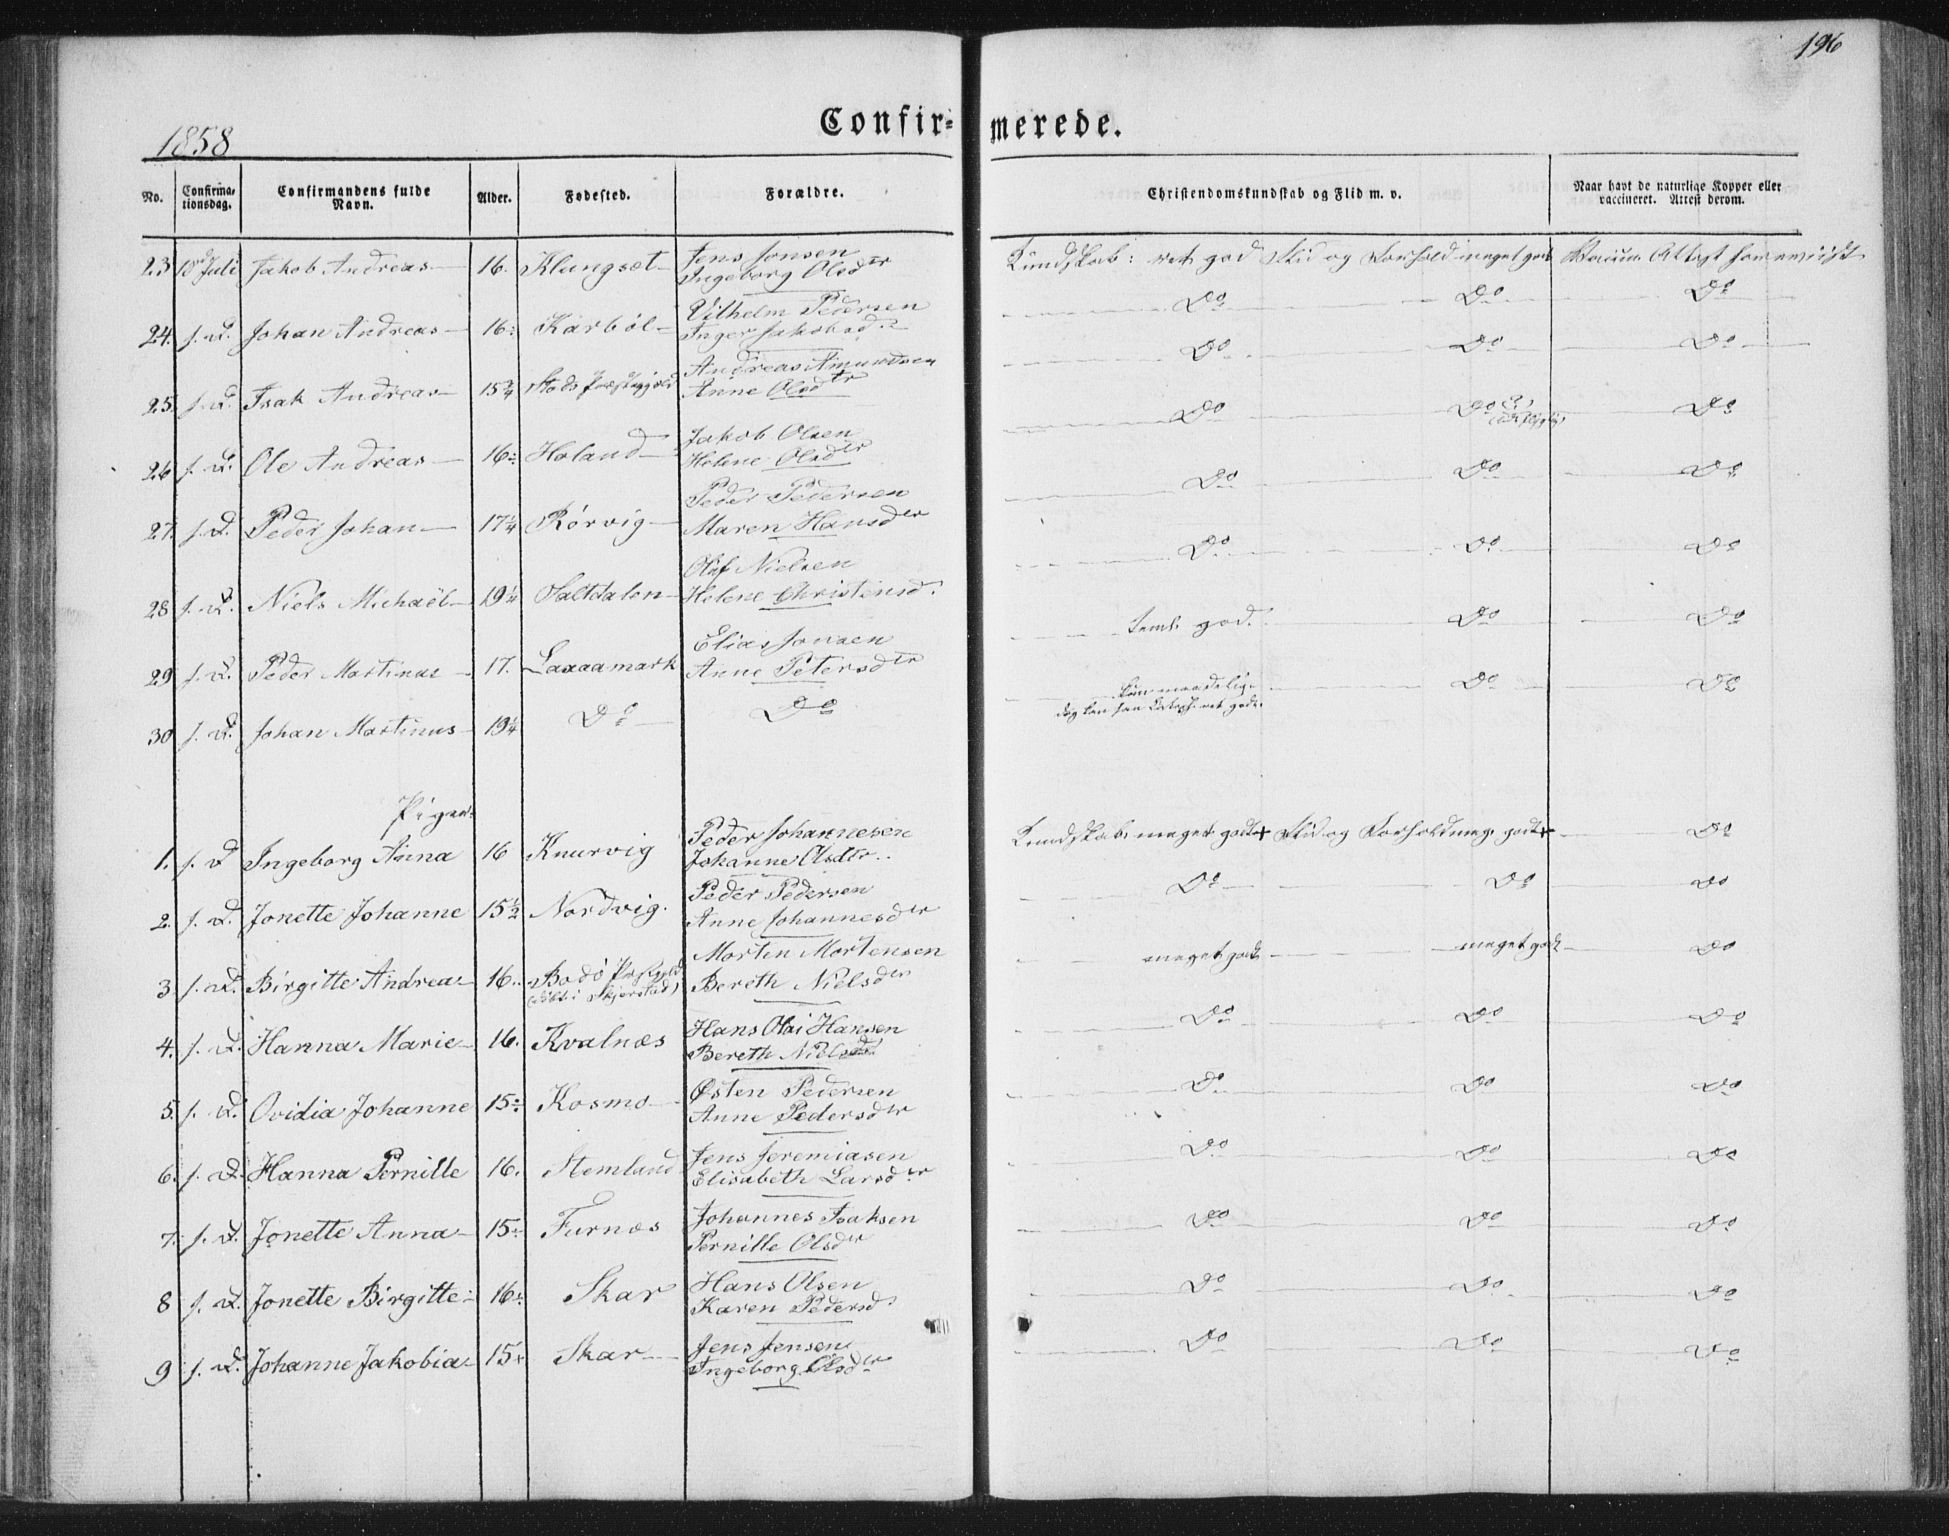 196
1858
Confir= merede.
No. Confirma-tionsdag. Confirmandens fulde Navn. Alder. Fødested. Forældre. Christendomskundskab og Flid m. v. Naar havt de naturlige Kopper eller vaccineret. Attest derom.
Jens Jonsen
23 18de Juli Jakob Andreas 16. Klungset Ingeborg Olsdtr Kundskab: ret god Flid og Forhold meget godt
Vilhelm Pedersen Do Do Do
24. f. D. Johan Andreas 16 Karbøl Inger Jakobsd.
Andreas Amundsen Do Do Do
25. f. D. Isak Andreas 15 3/4 Anne Olsdtr
Jakob Olsen Do Do Do
26 f. D. Ole Andreas 16 Holand Helene Olsdtr
Peder Pedersen Do Do Do
27. f. D. Peder Johan 17 1/4 Rørvig Maren Hansdtr
Olaf Nielsen Do Do Do
28 f. D. Niels Michaël 19 1/4 Saltdalen Helene Christensd.
Elias Jonsen teml. god. Do Do
29 f. D. Peder Martinus 17. Laxaamark Anne Petersdtr
Do Do
30 f. D. Johan Martinus 19 1/4 Do Do
Piger
Peder Johannesen Kundskab meget godt + Flid og Forhold meg. godt + Do
1. f. D Ingeborg Anna 16 Knurvig Johanne Olsdtr.
Peder Pedersen Do Do Do
2. f. D. Jonette Johanne 15 1/2 Nordvig. Anne Johannesdtr
Morten Mortensen meget godt meget godt Do
3 f. D. Birgitte Andrea 16. Bodø Bereth Nielsdtr
Hans Olai Hansen Do Do Do
4. f. D. Hanna Marie 16. Kvalnæs Bereth Nielsd
Østen Pedersen Do Do Do
5. f. D. Ovidia Johanne 15 Kosmo Anne Pedersdtr
Jens Jeremiasen Do Do Do
6. f. D. Hanna Pernille 16. Stemland Elisabeth Larsdtr
Johannes Isaksen Do Do Do
7. f. D. Jonette Anna 15 Furnæs Pernille Olsdtr
Hans Olsen Do Do Do
8 f. D. Jonette Birgitte 16 Skar Karen Pedersd
Jens Jensen Do Do Do
9 f. D. Johanne Jakobia 15 Skar Ingeborg Olsdtr